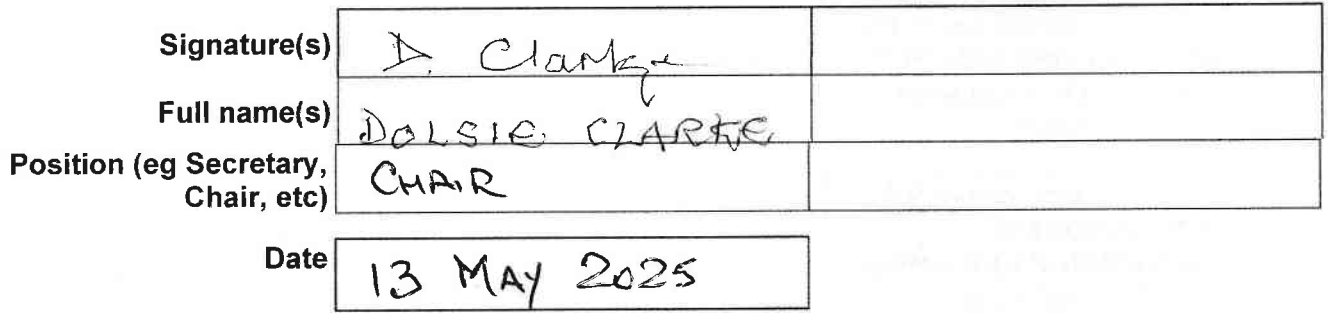 Signature(s) D. Clarke
Full name(s) DOLSIE CLARKE
Position (eg Secretary, CHAIR
Chair, etc)
Date 13 MAY 2025